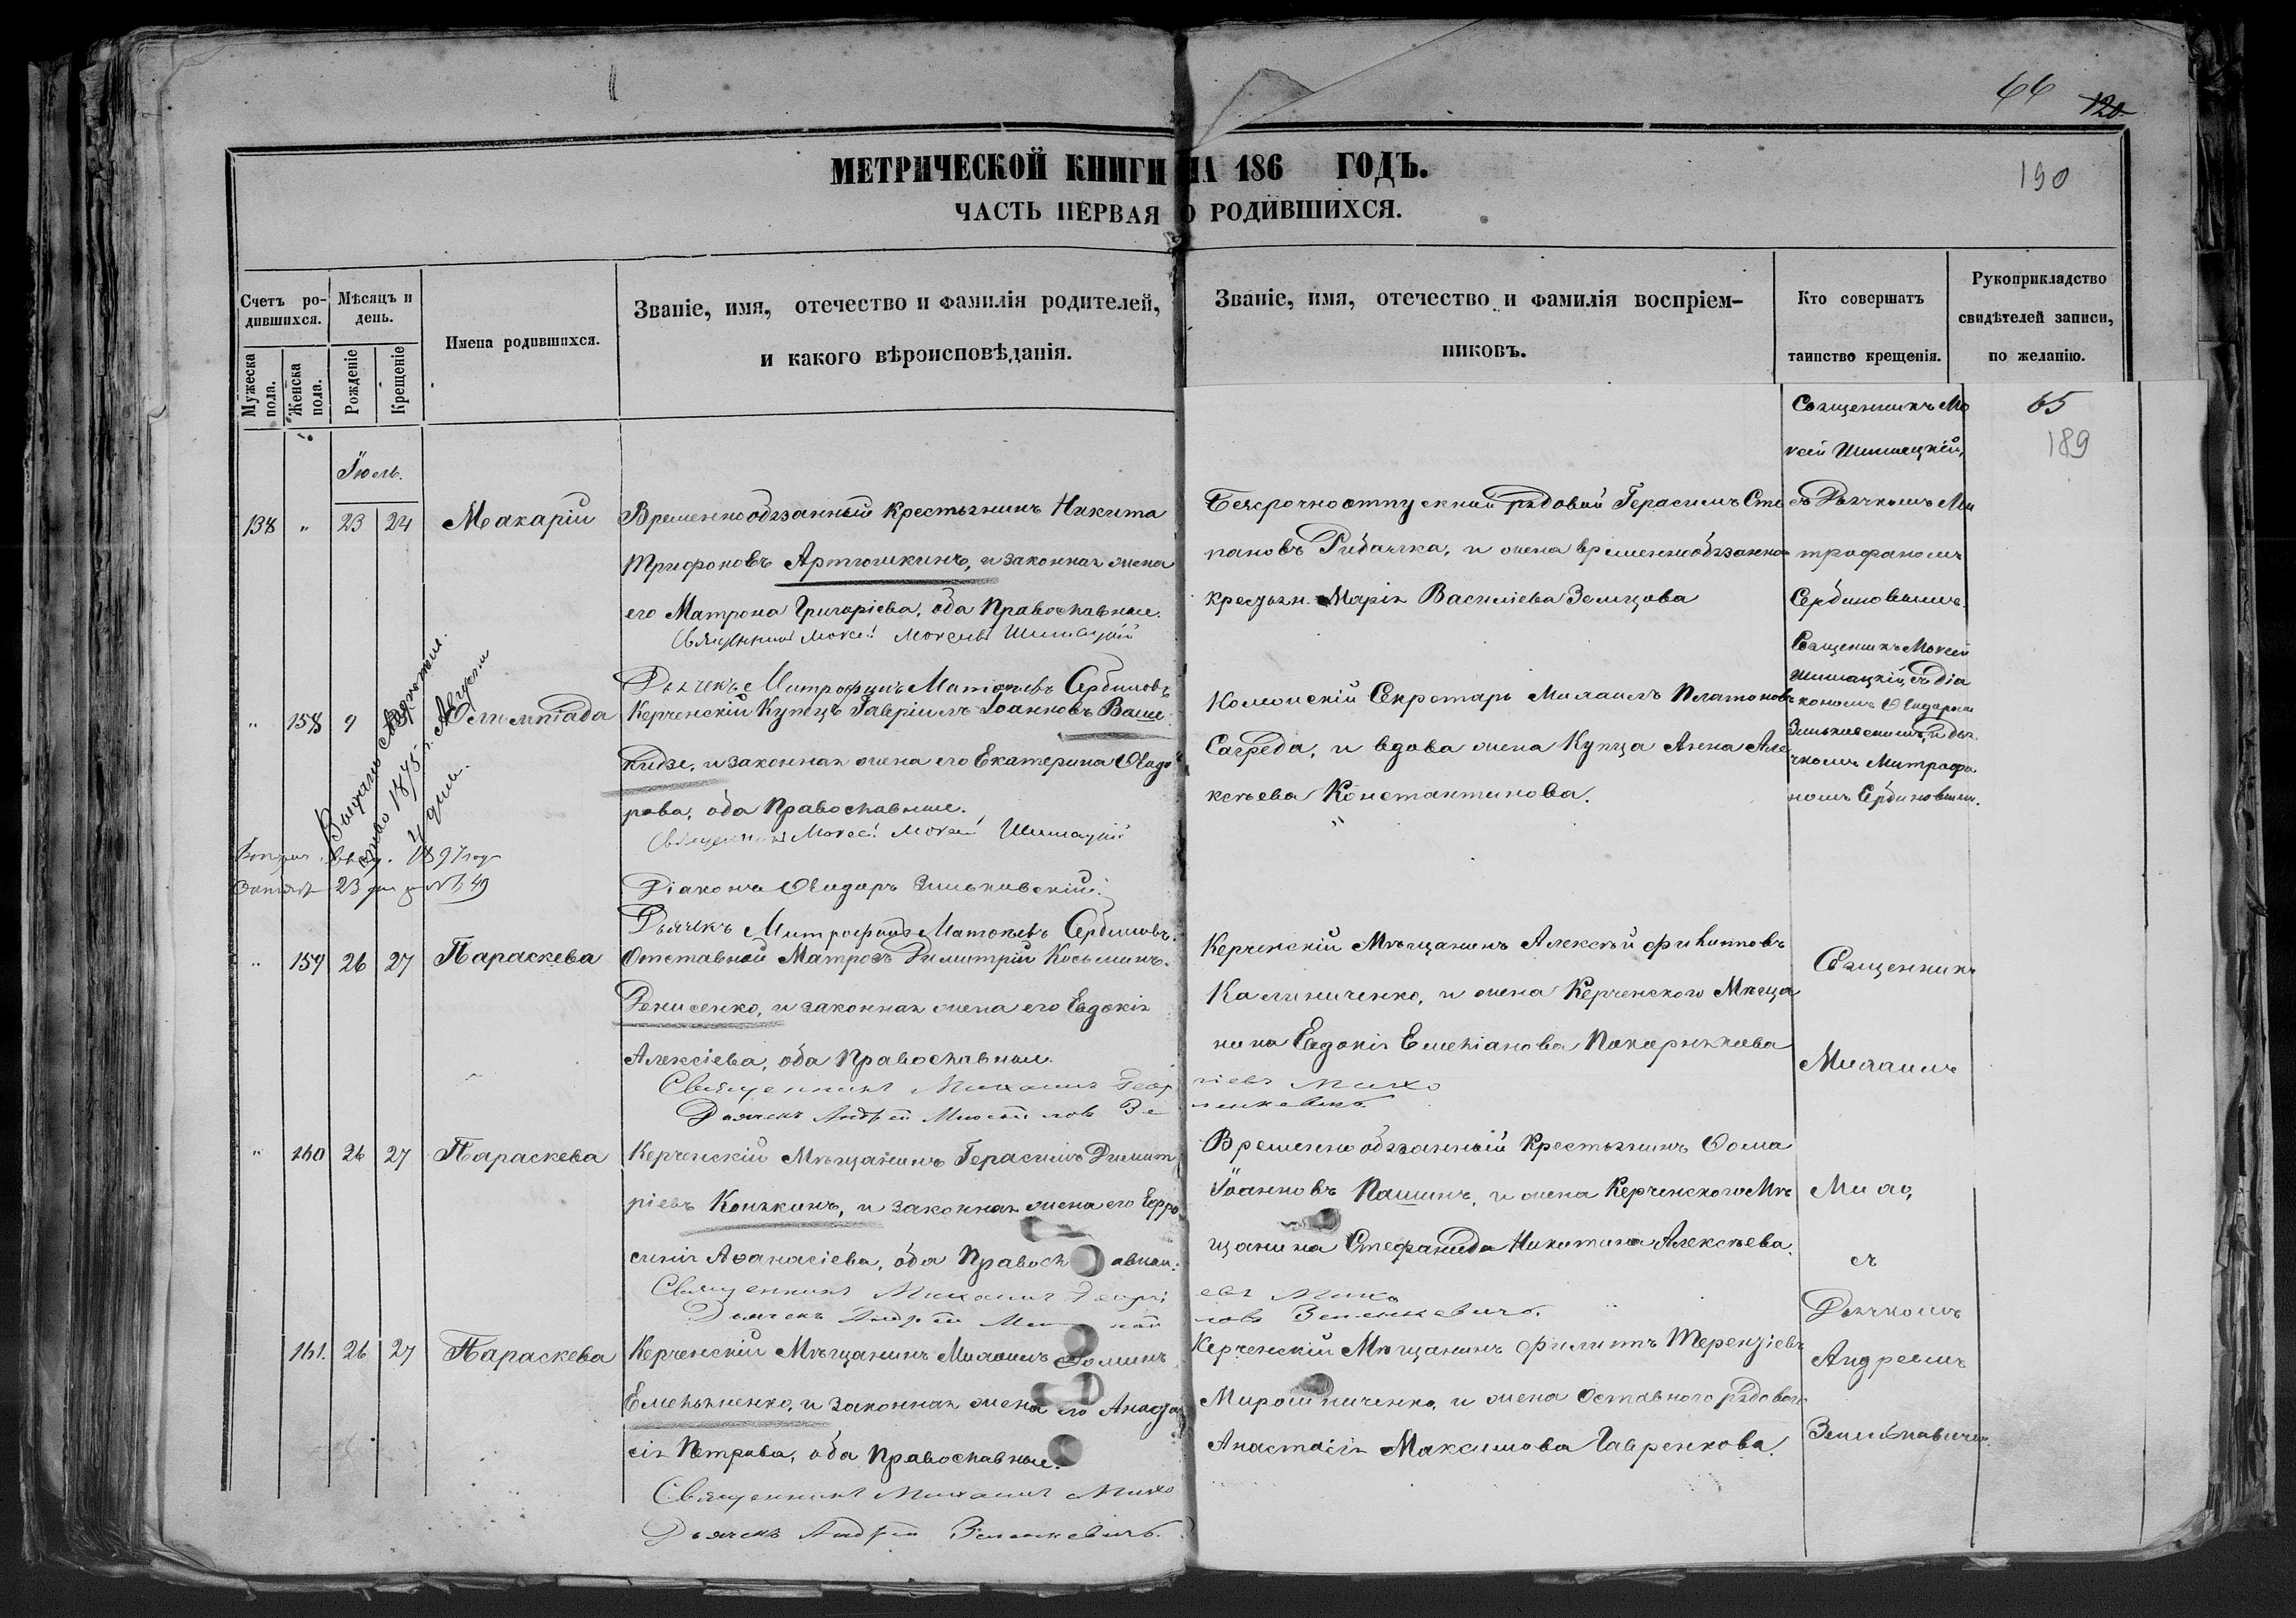 66
120
190
МЕТРИЧЕСКОЙ КНИГИ НА 186 ГОДЪ.
ЧАСТЬ ПЕРВАЯ О РОДИВШИХСЯ.
Счетъ ро-
дившихся.
Мужеска
пола.
Женска
пола.
Мѣсяцъ и
день.
Рожденіе
Крещеніе
Имена родившихся.
Званіе, имя, отечество и фамилія родителей,
и какого вѣроисповѣданія.
Званіе, имя, отечество и фамилія воспріем-
никовъ.
Кто совершатъ
таинство крещенія.
Рукоприкладство
свидѣтелей записи,
по желанію.
65
189
Іюль.
138 " 23 24 Макарій
Временнообязанный крестьянинъ Никита
Трифоновъ Артюшкинъ, и законная жена
его Матрона Григоріева, оба Православные.
Священникъ Мокей Шимацкій
Дьячекъ Митрофанъ Сербиновъ
Безсрочноотпускный рядовой Герасимъ Сте
пановъ Рибалка, и жена временнообязанно
крестьян. Марія Василіева Земцова
Священникъ Мо
кей Шимацкій,
съ Дьячкомъ Ми
трофаномъ
Сербиновымъ.
" 158 9 Олимпіада
Керченскій Купецъ Гавріилъ Іоанновъ Ваше
кидзе, и законная жена его Екатерина Ѳеодо
рова, оба Православные.
Священникъ Мокей Шимацкій
Діаконъ Ѳеодоръ Зиньковскій
Дьячекъ Митрофанъ Сербиновъ.
Секретарь Михаилъ Платоновъ
Сагреда, и вдова жена Купца Анна Але
ксѣева Константинова.
Священникъ Мокей
Шимацкій, съ Діа
кономъ Ѳеодоромъ
Зиньковскимъ, и дья
чкомъ Митрофа
номъ Сербиновымъ.
1875 г. Августа
1897 года
23 дня № 49
" 159 26 27 Параскева
Отставной Матросъ Димитрій Косьминъ
Денисенко, и законная жена его Евдокія
Алексіева, оба Православные.
Священникъ Михаилъ Георгіевъ Михо
Дьячекъ Андрей Зеленкевичъ.
Керченскій Мѣщанинъ Алексѣй Филипповъ
Калиниченко, и жена Керченского Мѣща
нина Евдокія Емеліанова
Священникъ
Михаилъ
" 160 26 27 Параскева
Керченскій Мѣщанинъ Герасимъ Димит
ріевъ Конякинъ, и законная жена его Ефро
синія Аѳанасіева, оба Православные.
Священникъ Михаилъ Георгіевъ Михо
Дьячекъ Андрей Зеленкевичъ.
Временнообязанный Крестьянинъ Ѳома
Іоанновъ Пашинъ, и жена Керченского Мѣ
щанина Стефанида Никитина Алексѣева.
Михо,
съ
Дьячкомъ
161. 26 27 Параскева
Керченскій Мѣщанинъ Михаилъ Ѳоминъ
Емельяненко, и законная жена его Анаста
сія Петрова, оба Православные.
Священникъ Михаилъ Михо
Дьячекъ Андрей Зеленкевичъ.
Керченскій Мѣщанинъ Филиппъ Терентіевъ
Мирошниченко, и жена Отставного рядового
Анастасія Максимова Гавренкова.
Андреемъ